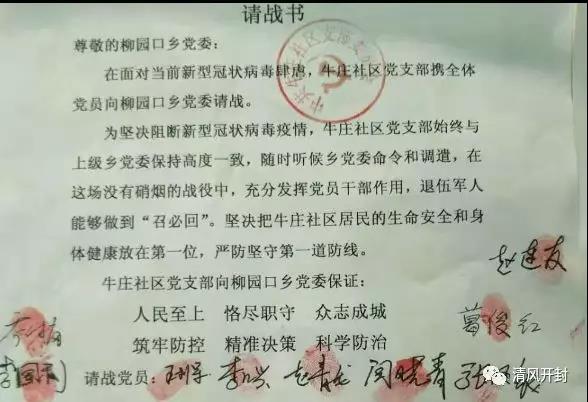 请战书
尊敬的柳园口乡党委：
在面对当前新型冠状病毒肆虐，牛庄社区党支部携全体
党员向柳园口乡党委请战。
为坚决阻断新型冠状病毒疫情，牛庄社区党支部始终与
上级乡党委保持高度一致，随时听候乡党委命令和调遣，在
这场没有硝烟的战役中，充分发挥党员干部作用，退伍军人
能够做到“召必回”。坚决把牛庄社区居民的生命安全和身
体健康放在第一位，严防坚守第一道防线。
赵建友
牛庄社区党支部向柳园口乡党委保证：
人民至上 恪尽职守 众志成城
葛俊红
筑牢防控 精准决策 科学防治
请战党员：闫晓青
清风开封